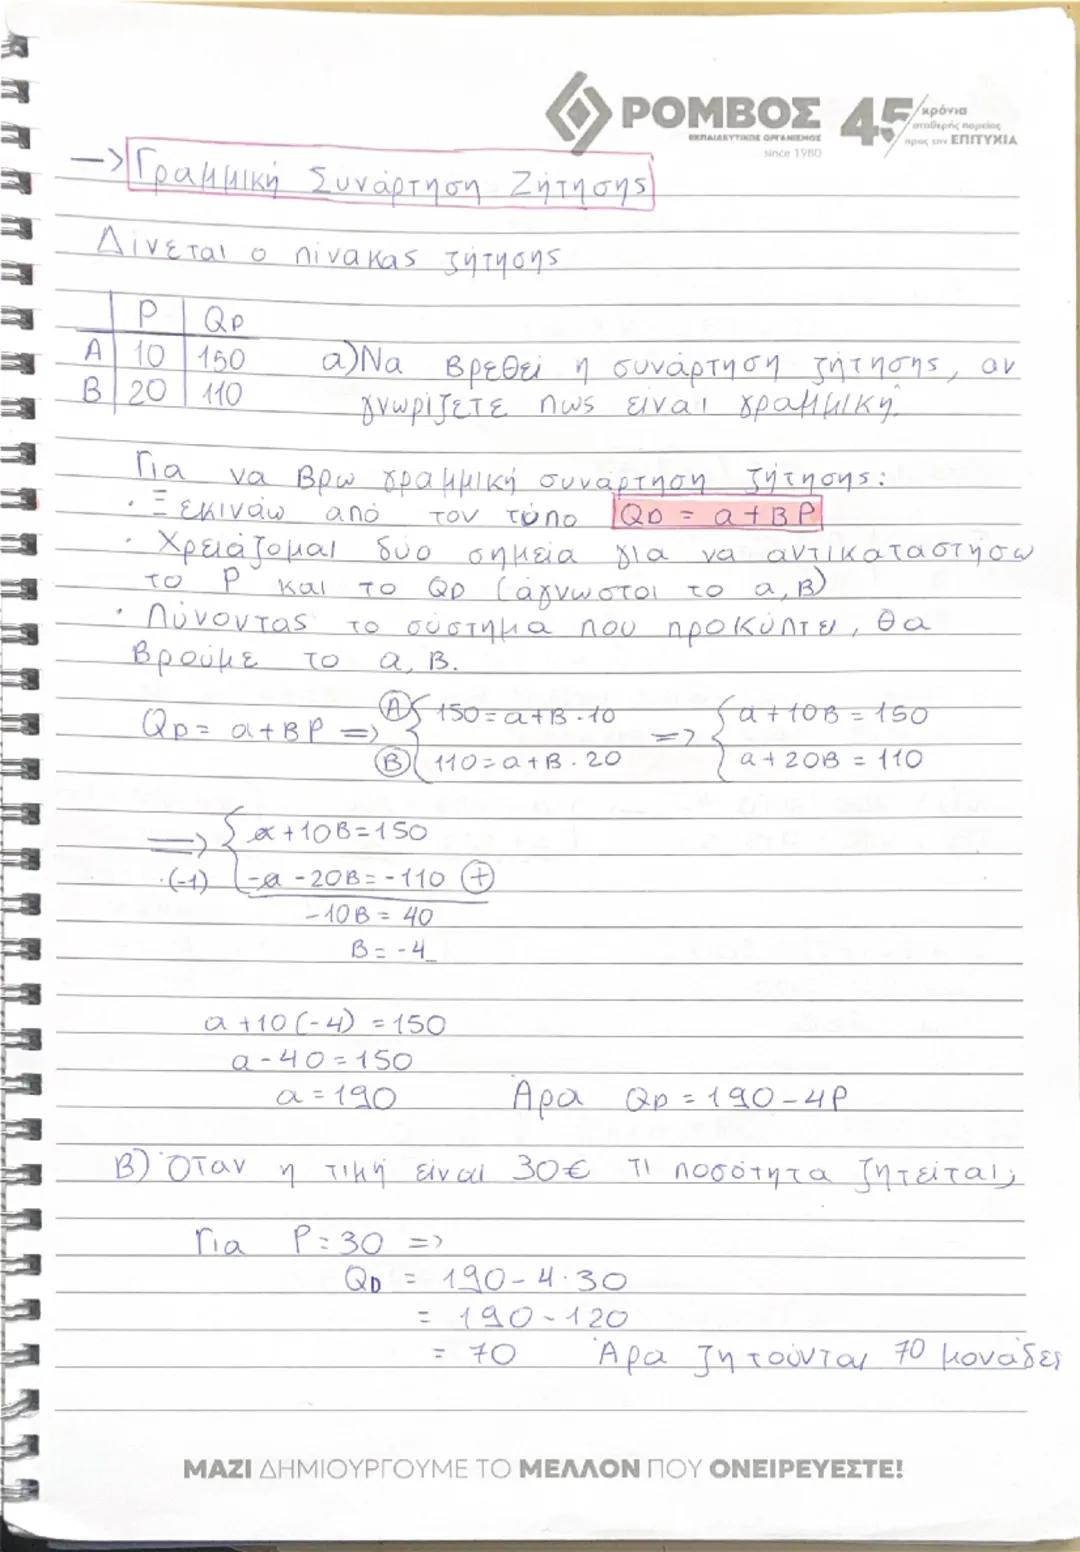 ΡΟΜΒΟΣ 45 χρόνια
ΕΚΠΑΙΔΕΥΤΙΚΟΣ ΟΡΓΑΝΙΣΜΟΣ σταθερής πορείας
since 1980 προς την ΕΠΙΤΥΧΙΑ
-> Γραμμική Συνάρτηση Ζήτησης
Δίνεται ο πίνακας ζήτησης
P QD
A 10 150 α) Να βρεθεί η συνάρτηση ζήτησης, αν
B 20 110 γνωρίζετε πως είναι γραμμική.
Για να βρω γραμμική συνάρτηση ζήτησης:
· Ξεκινάω από τον τύπο QD = α+βP
· Χρειάζομαι δύο σημεία για να αντικαταστήσω
το P και το QD (άγνωστοι το α, β)
· Λύνοντας το σύστημα που προκύπτει, θα
βρούμε το α, β.
QD = α+βP => (A) { 150 = α+β·10 => { α+10β = 150
(B) { 110 = α+β·20 { α+20β = 110
=> { α+10β=150
·(-1) { -α-20β=-110 (+)
-10β = 40
β = -4
α+10(-4) = 150
α-40=150
α=190 Άρα QD = 190-4P
β) Όταν η τιμή είναι 30€ τι ποσότητα ζητείται;
Για P=30 =>
QD = 190-4·30
= 190-120
= 70 Άρα ζητούνται 70 μονάδες
ΜΑΖΙ ΔΗΜΙΟΥΡΓΟΥΜΕ ΤΟ ΜΕΛΛΟΝ ΠΟΥ ΟΝΕΙΡΕΥΕΣΤΕ!